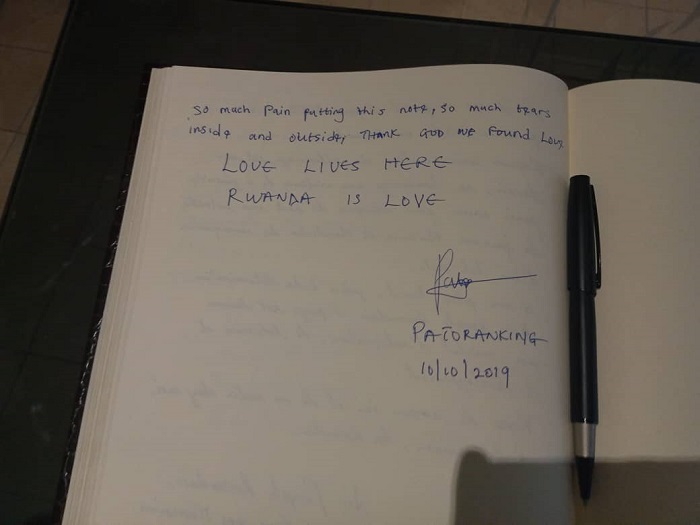 So much Pain putting this note, so much tears
inside and outside, THANK GOD WE FOUND LOVE
LOVE LIVES HERE
RWANDA IS LOVE
PATORANKING
10/10/2019